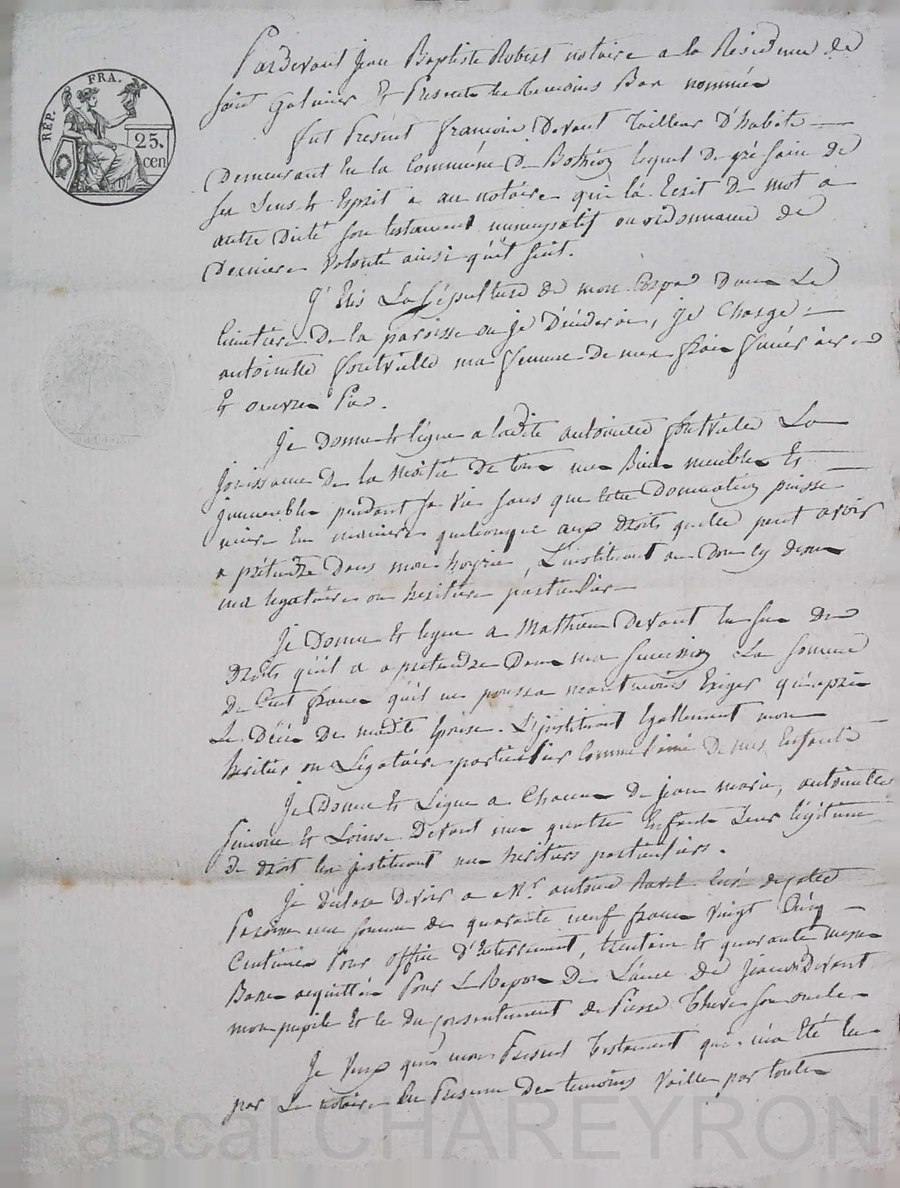 RÉP. FRA.
25. cen
Pardevant Jean Baptiste Robert notaire a la Résidence de
saint Galmier & Présents les témoins Bas nommés
fut Présent françois Devant tailleur D'habits
Demeurant En la Commune De lequel De gré sain de
ses sens & Esprit a au notaire qui l'a Ecrit De mot a
autre Dicté son testament nuncupatif ou ordonnance de
Derniere Volonté ainsi qu'il suit.
J' Elis La Sépulture de mon Corps Dans Le
Cimetière De la paroisse ou je Décéderai, je Charge
antoinette fontvielle ma femme De mes frais funéraires
& oeuvres Pies.
Je Donne & legue a ladite antoinette fontvielle La
jouissance De la Moitié De tous mes Biens meubles Et
immeubles pendant sa vie sans que cette Donnation puisse
nuire En maniere quelconque aux Droits qu'elle peut avoir
a prétendre Dans mon hoyrie, L'instituant au Don cy dessus
ma legataire ou héritiere particuliere
Je Donne & legue a Mathieu Devant En sus des
Droits qu'il a a pretendre Dans ma succession La somme
De Cent francs qu'il ne pourra neantmoins Exiger qu'après
Le Décès De madite Epouse. L'instituant Egallement mon
héritier ou Légataire particulier Comme de mes Enfants
Je Donne & Légue a Chacun De jean marie, antoinette
Simone & Loüise Devant mes quatre Enfants Leur légitime
De droit les instituant mes héritiers particuliers.
Je déclare Devoir a Mr. antoine Curé de
Paroisse une somme de quarante neuf francs Vingt Cinq
Centimes Pour office D'Enterrement, trentain & quarante messes
Basses acquittées Pour Le Repos De L'ame de Devant
mon pupile Et le du Consentement de Pierre son oncle
Je Veux que mon Présent Testament qui m'a Eté lu
par Le notaire En Présence Des temoins Vaille par toutes
Pascal CHAREYRON